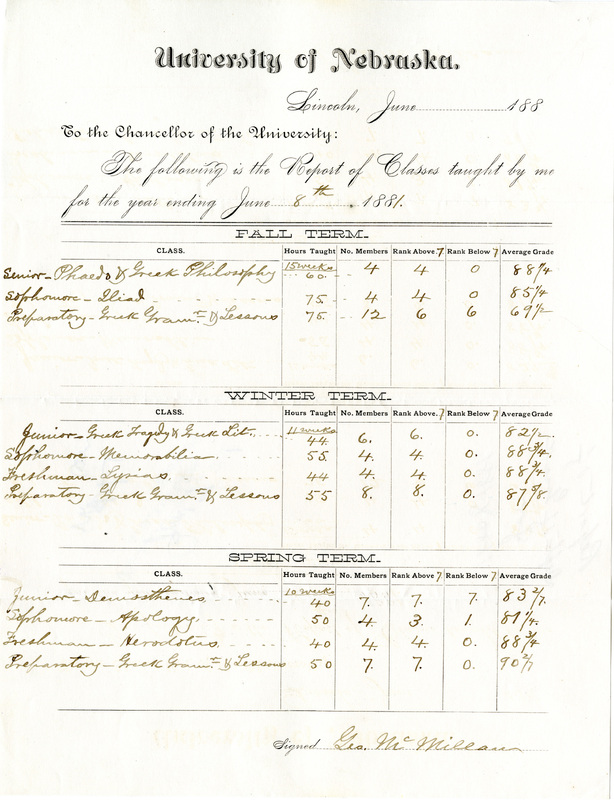 University of Nebraska.
Lincoln, June 188
To the Chancellor of the University:
The following is the Report of Classes taught by me
for the year ending June 8th, 1881.
FALL TERM.
CLASS. Hours Taught No. Members Rank Above 7 Rank Below 7 Average Grade
Senior - Phaedo & Greek Philosophy 15 weeks 60. 4 4 0 88 1/4
Sophomore - Iliad 75. 4 4 0 85 1/4
Preparatory - Greek Gram. & Lessons 75. 12 6 6 69 1/2
WINTER TERM.
CLASS. Hours Taught No. Members Rank Above 7 Rank Below 7 Average Grade
Junior - Greek Tragedy & Greek Lit. 11 weeks 44. 6. 6. 0. 82 1/2
Sophomore - Memorabilia 55 4. 4. 0. 88 3/4.
Freshman - Lysias 44 4. 4. 0. 88 3/4.
Preparatory - Greek Gram. & Lessons 55 8. 8. 0. 87 5/8
SPRING TERM.
CLASS. Hours Taught No. Members Rank Above 7 Rank Below 7 Average Grade
Junior - Demosthenes 10 weeks 40 7. 7. 7. 83 2/7.
Sophomore - Apology 50 4. 3. 1. 81 1/4.
Freshman - Herodotus 40 4. 4. 0. 88 3/4
Preparatory - Greek Gram. & Lessons 50 7. 7. 0. 90 2/7
Signed Geo. McMillan